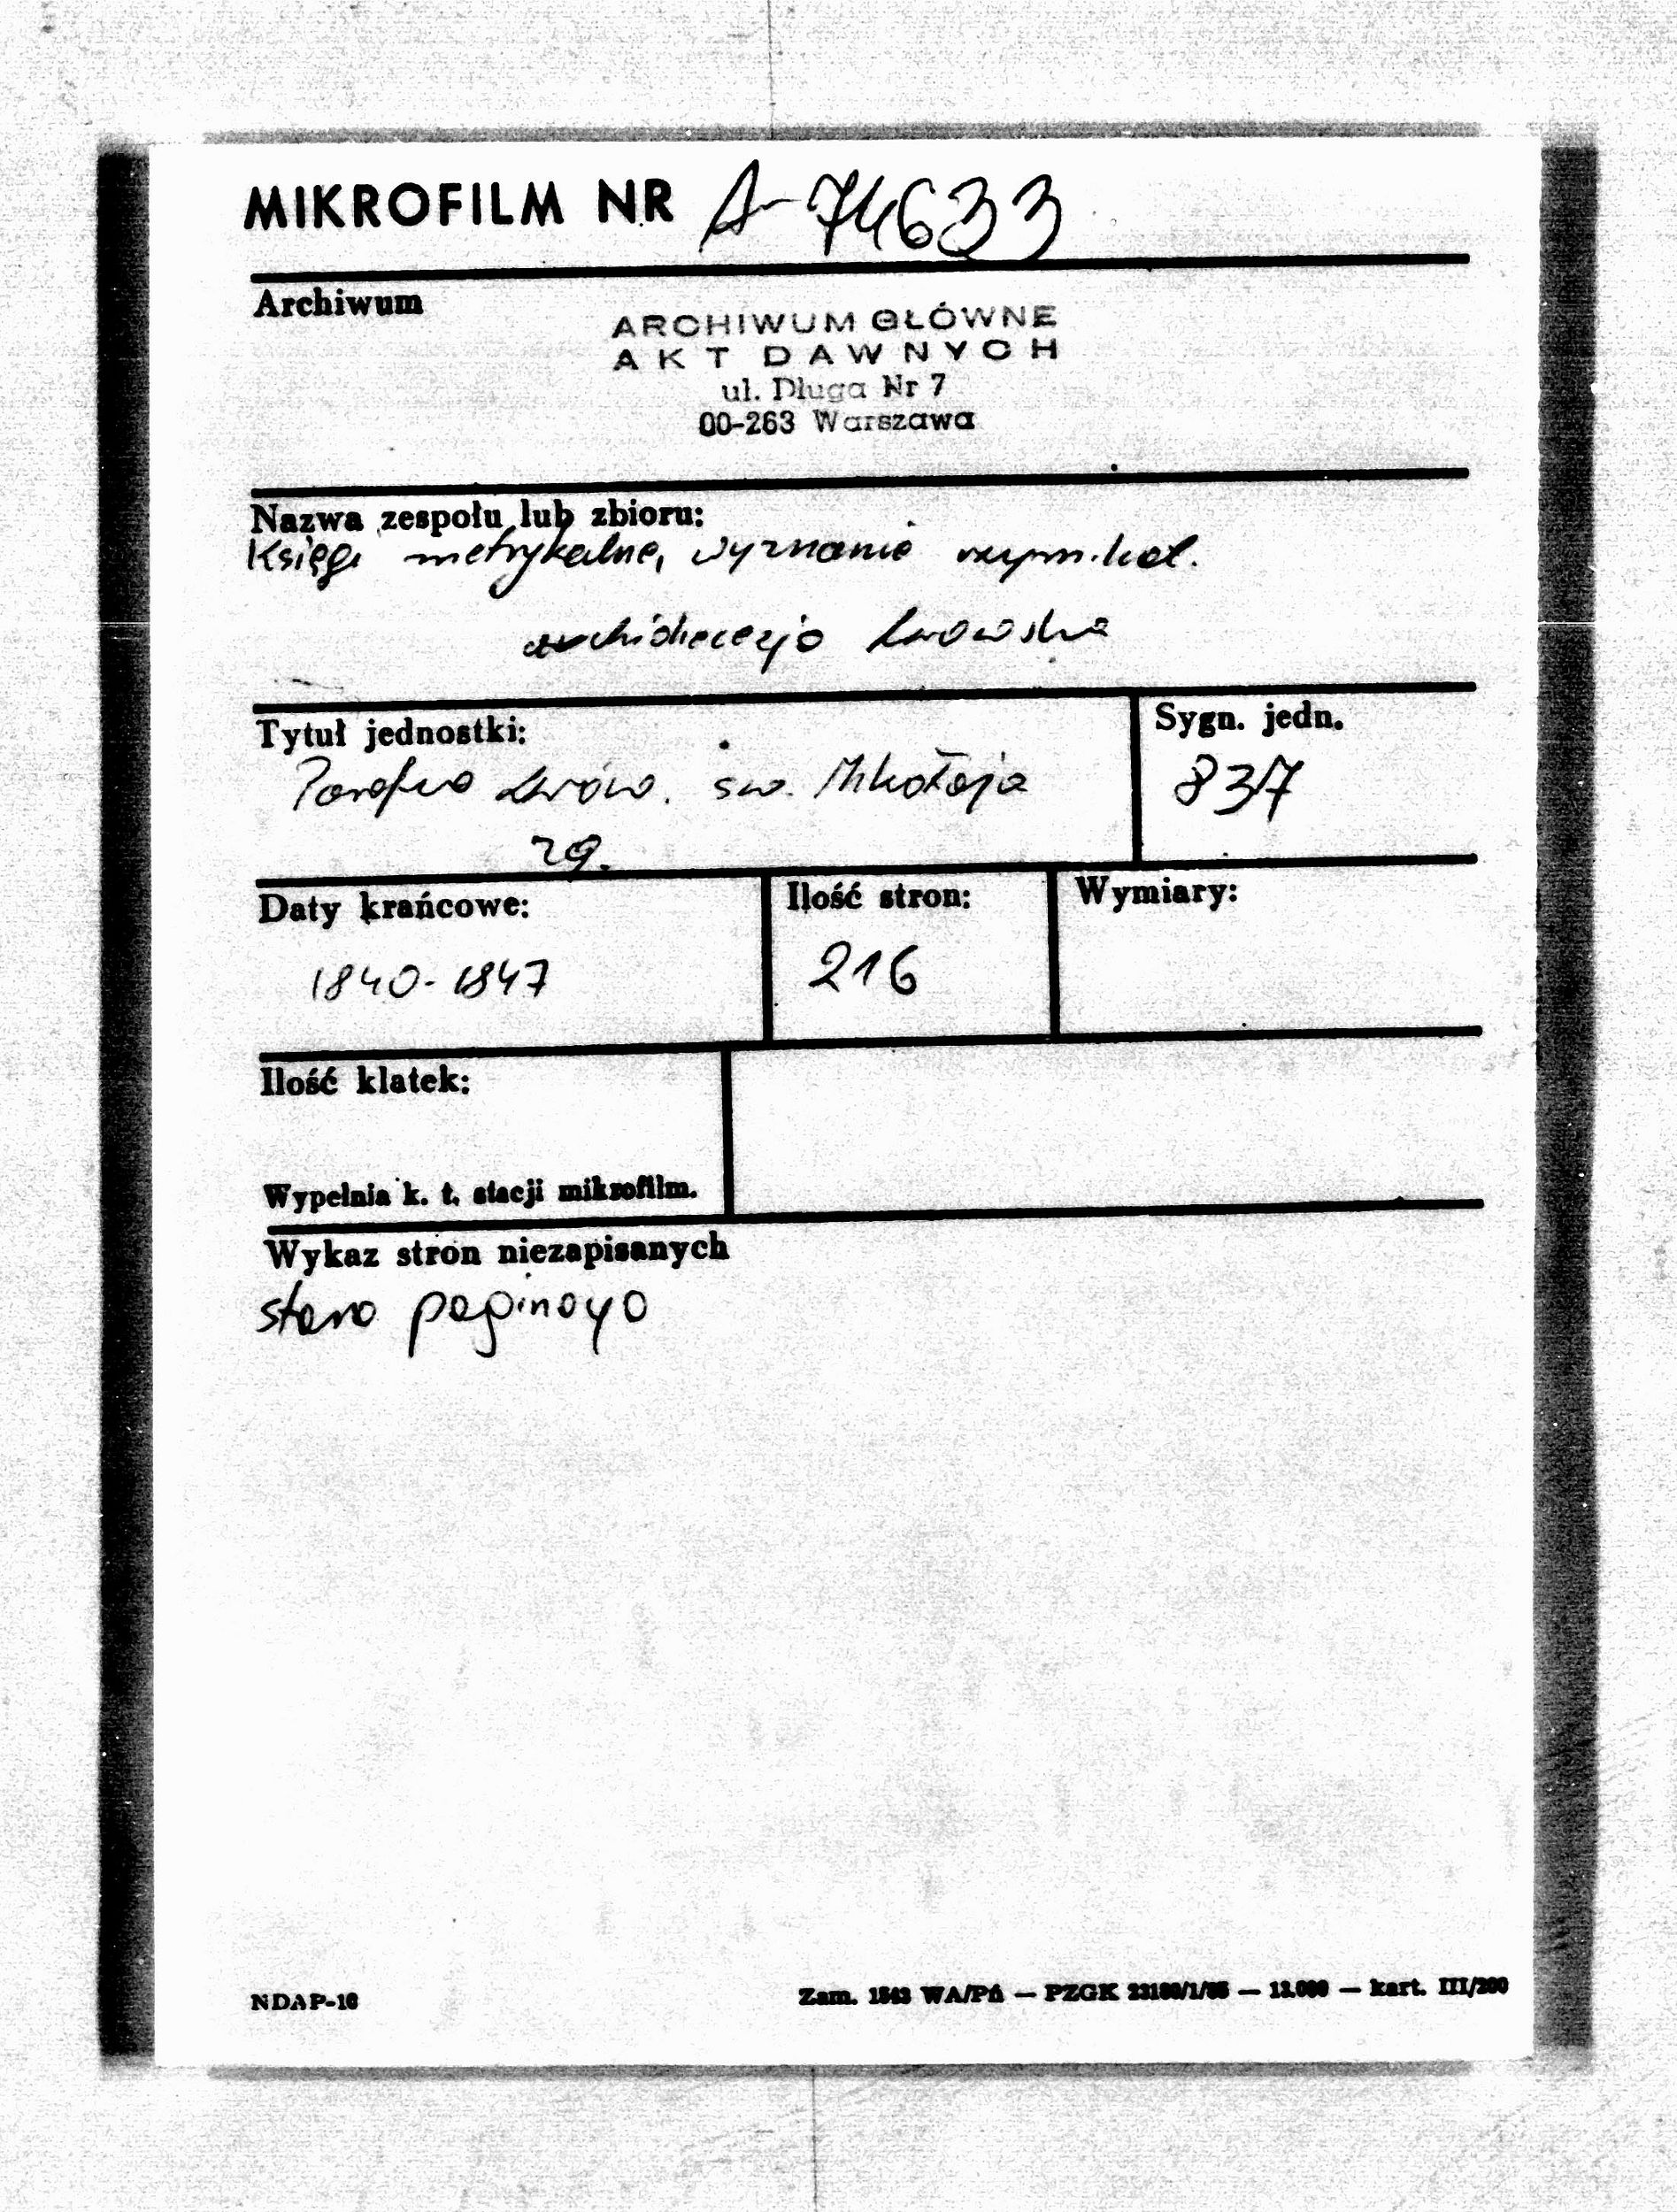 MIKROFILM NR A-74633
Archiwum
ARCHIWUM GŁÓWNE
AKT DAWNYCH
ul. Długa Nr 7
00-263 Warszawa
Nazwa zespołu lub zbioru:
Księgi metrykalne, wyznanie rzym.kat.
archidiecezja Lwowska
Tytuł jednostki:
Sygn. jedn.
Parafia Lwów. św. Mikołaja
837
zg.
Daty krańcowe:
Ilość stron:
Wymiary:
1840-1847
216
Ilość klatek:
Wypełnia k. t. stacji mikrofilm.
Wykaz stron niezapisanych
stara paginacja
NDAP-16
Zam. 1543 WA/Pń — PZGK — kart. III/200